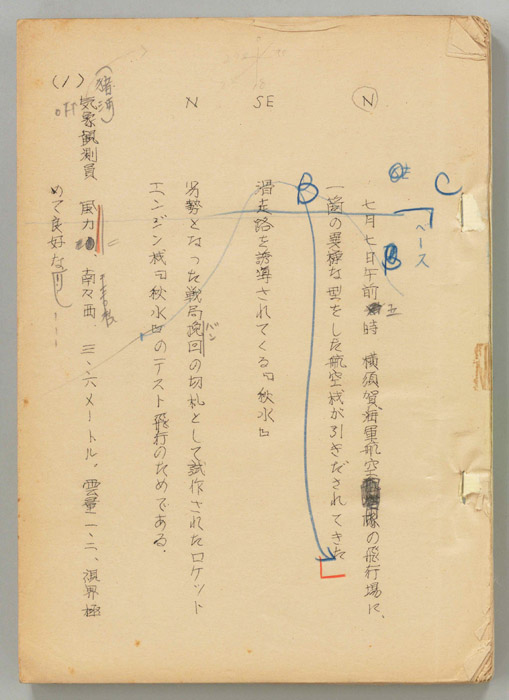 C
N
ベース
B
五
七月七日午前 時 横須賀海軍航空隊の飛行場に、
一箇の異様な型をした航空機が引きだされてきた
B
SE
滑走路を誘導されてくる『秋水』
N
劣勢となった戦局挽回の切札として試作されたロケット
バン
エンジン機『秋水』のテスト飛行のためである.
(猪河)
off
(1) 気象観測員 風力 、南々西、三、六メートル、雲量一、二、視界極
めて良好なり……